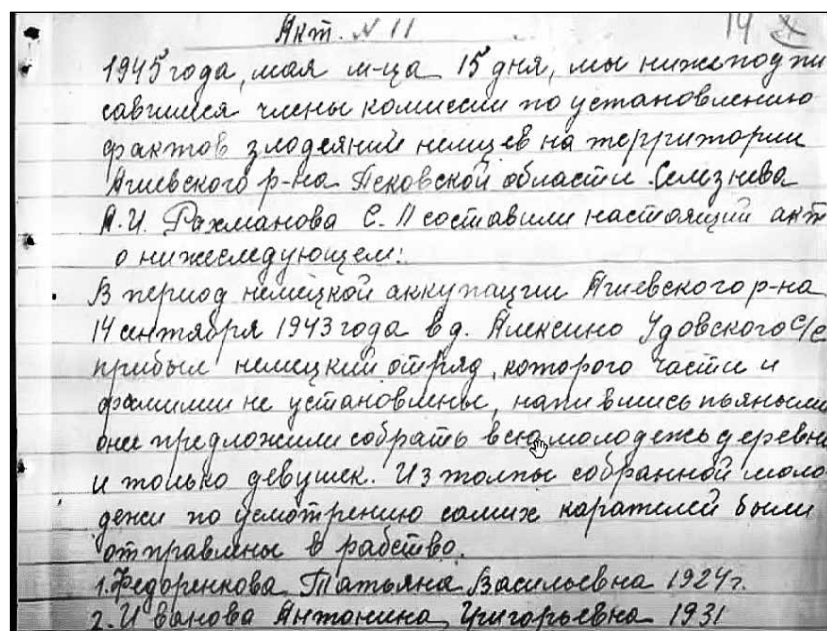 Акт. № 11 14
1945 года, мая м-ца 15 дня, мы нижеподпи
савшиеся члены комиссии по установлению
фактов злодеяний немцев на территории
Ашевского р-на Псковской области Селезнева
А.И. Рахманова С.П составили настоящий акт
о нижеследующем:
В период немецкой аккупации Ашевского р-на
14 сентября 1943 года в д. Алексино Удовского с/с
прибыл немецкий отряд, которого части и
фамилии не установлены, напившись пьяными
они предложили собрать всю молодежь деревни
и только девушек. Из толпы собранной моло
дежи по усмотрению самих карателей были
отправлены в рабство.
1. Федоренкова Татьяна Васильевна 1924 г.
2. Иванова Антонина Григорьевна 1931